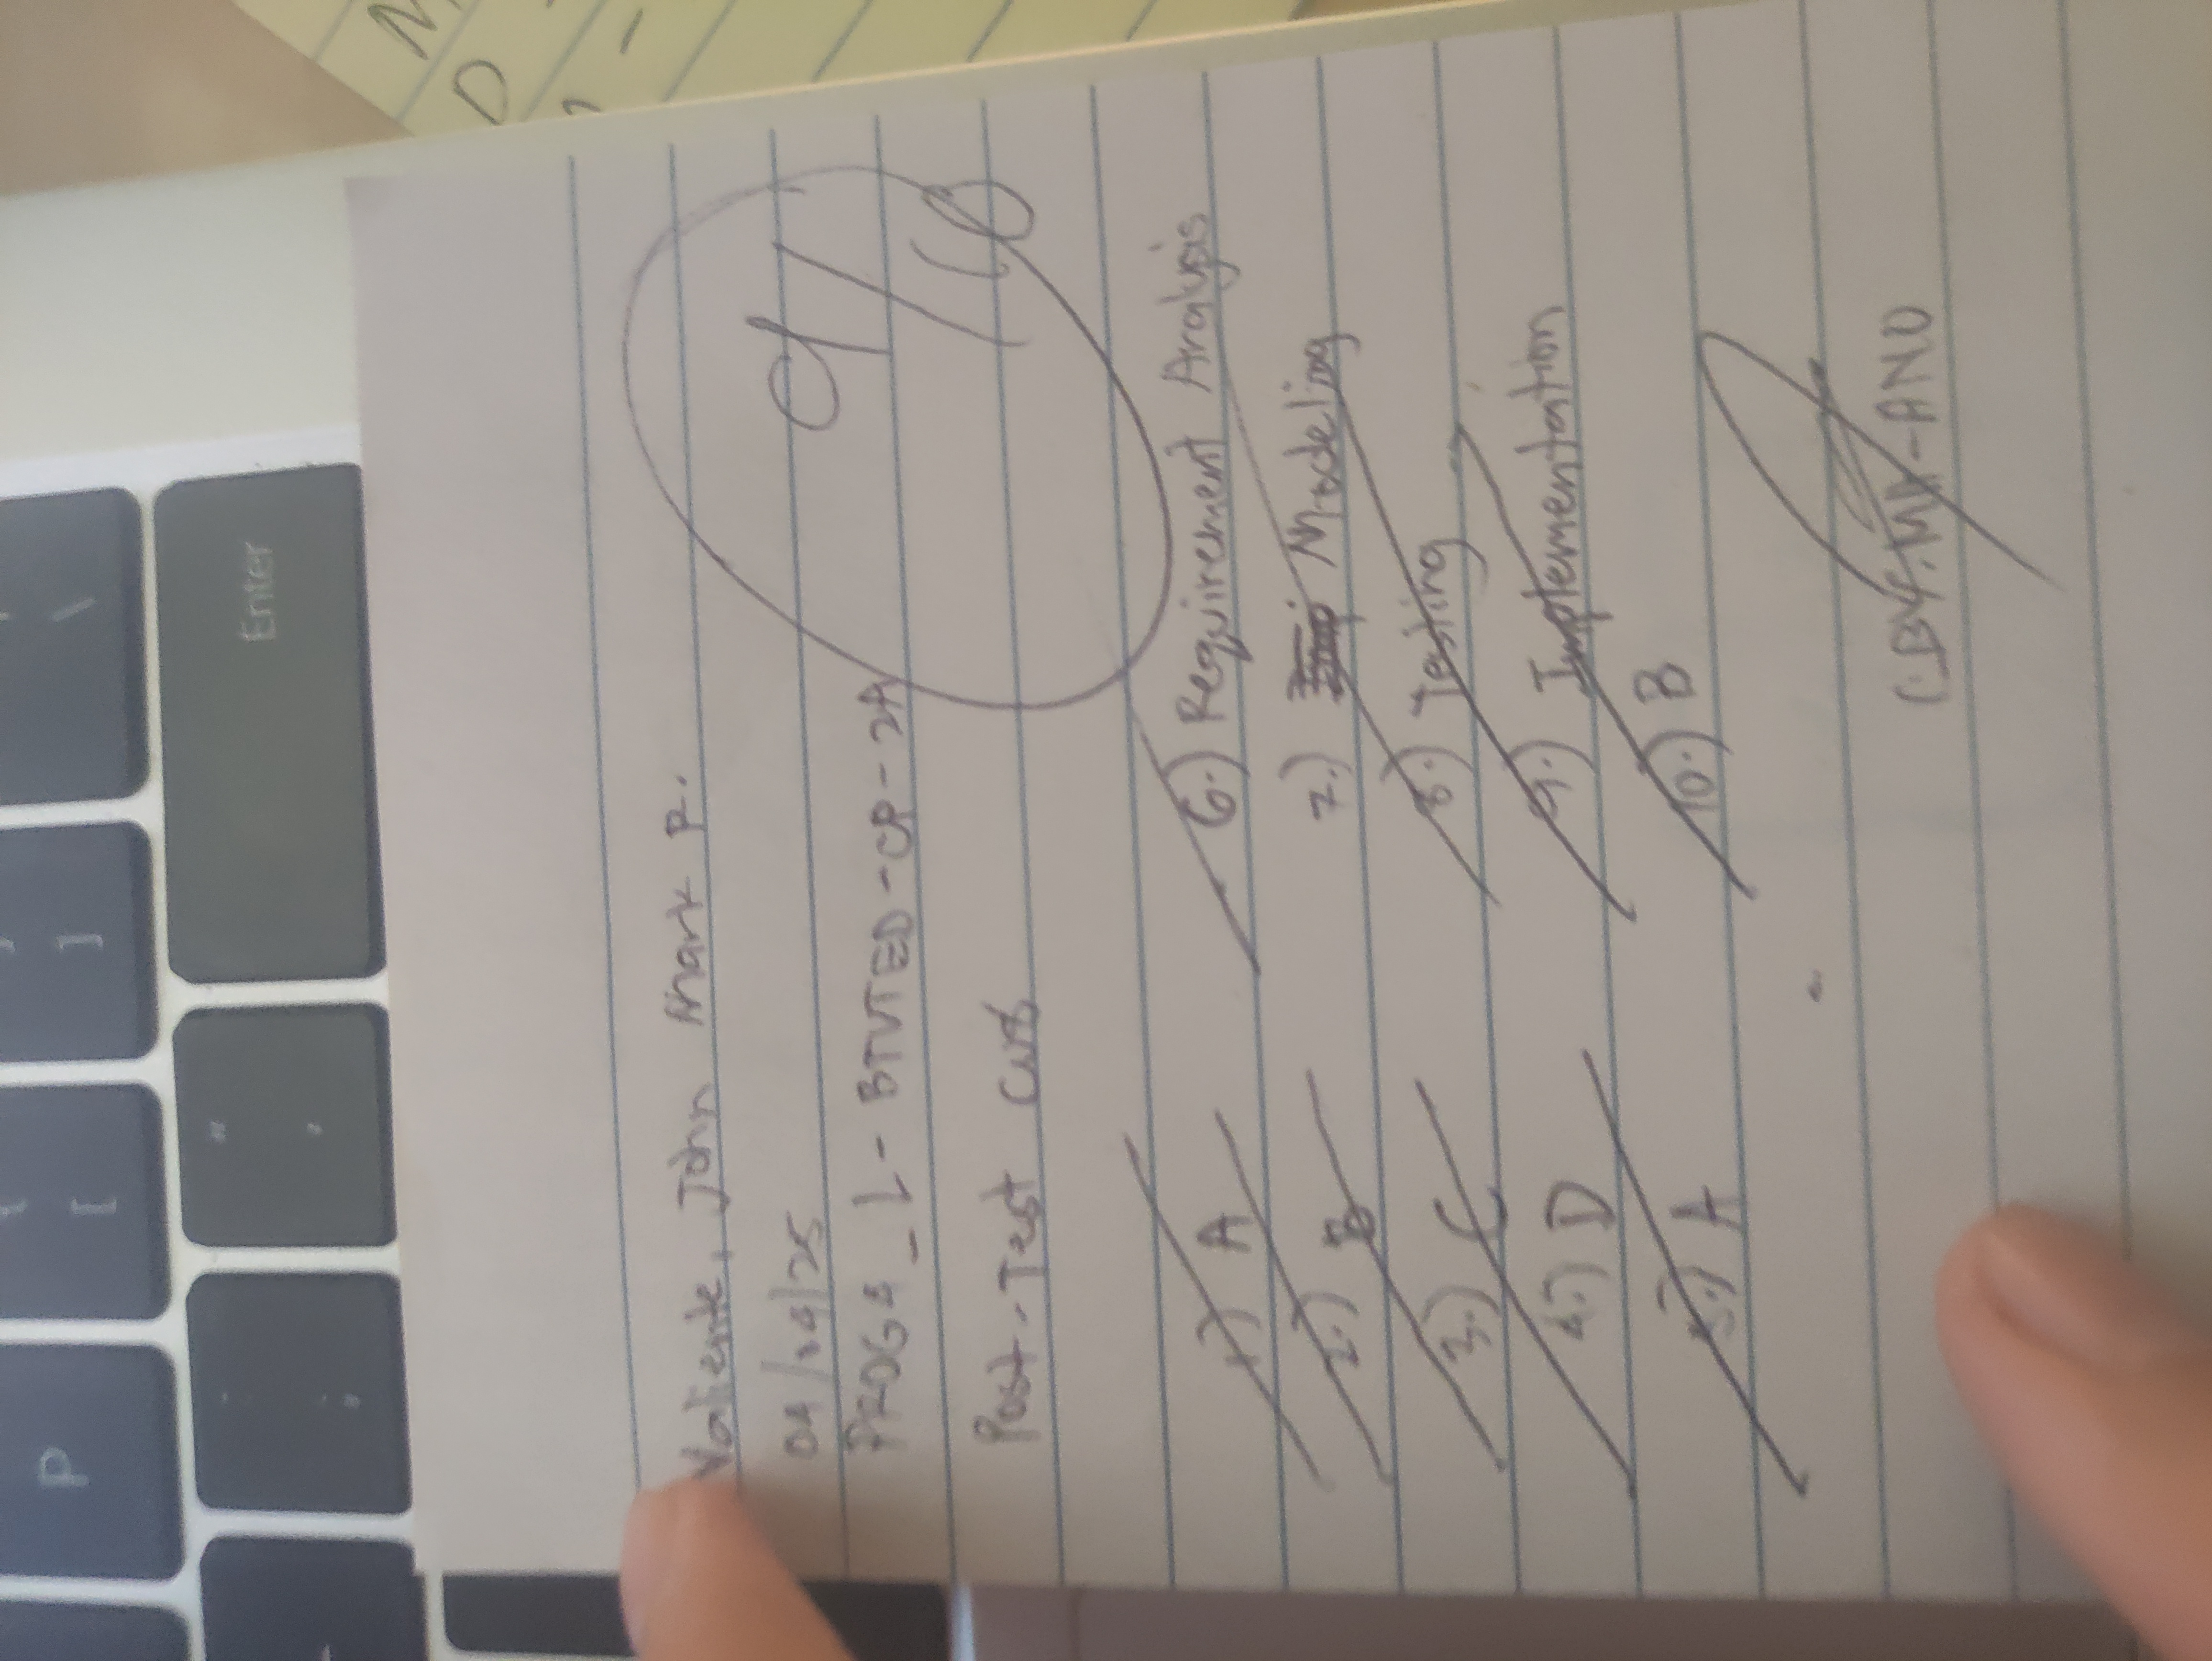 P
[
]
\
Enter
Valiente, John Mark R.
04/04/25
PROG4_L-BTVTED-CP-2A
Post-Test CW8
9/10
1.) A
2.) B
3.) C
4.) D
5.) A
6.) Requirement Analysis
7.) Modeling
8.) Testing
9.) Implementation
10.) B
MA-ANO